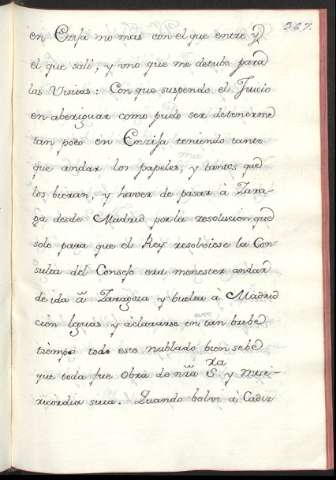 367.
en Cerija no mas con el que entre y
el que salí, y uno que me detubo para
las Visitas: Con que suspendo el Juicio
en aberiguar como pudo ser detenerme
tan poco en teniendo tanto
que andar los papeles, y tantos que
los bieran, y haver de pasar á Zara-
ga desde Madrid por la resolucion que
solo para que el Rey resolviese la Con-
sulta del Consejo era menester andar
de ida á Zaragoza y buelta á Madrid
cien leguas y aclararse en tan brebe
tiempo todo este nublado bien se bé
que toda fue obra de nrã S.ra y mise-
ricordia suia. Quando bolvi á Cadiz